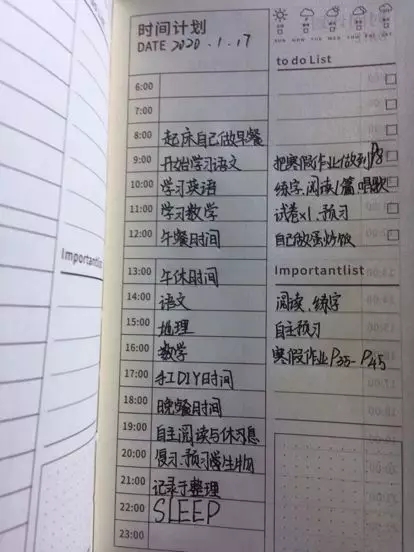 时间计划
DATE 2020.1.17
SUN MON TUE WED THU FRI SAT
to do List
6:00
7:00
8:00 起床自己做早餐
9:00 开始学习语文
把寒假作业做到P8
10:00 学习英语
练字.阅读1篇 唱歌
11:00 学习数学
试卷x1.预习
12:00 午餐时间
自己做蛋炒饭
Importantlist
Importantlist
13:00 午休时间
14:00 语文
阅读、练字
15:00 地理
自主预习
16:00 数学
寒假作业P35-P45
17:00 手工DIY时间
18:00 晚餐时间
19:00 自主阅读与休息
20:00 复习.预习生物
21:00 记录于整理
22:00 SLEEP
23:00